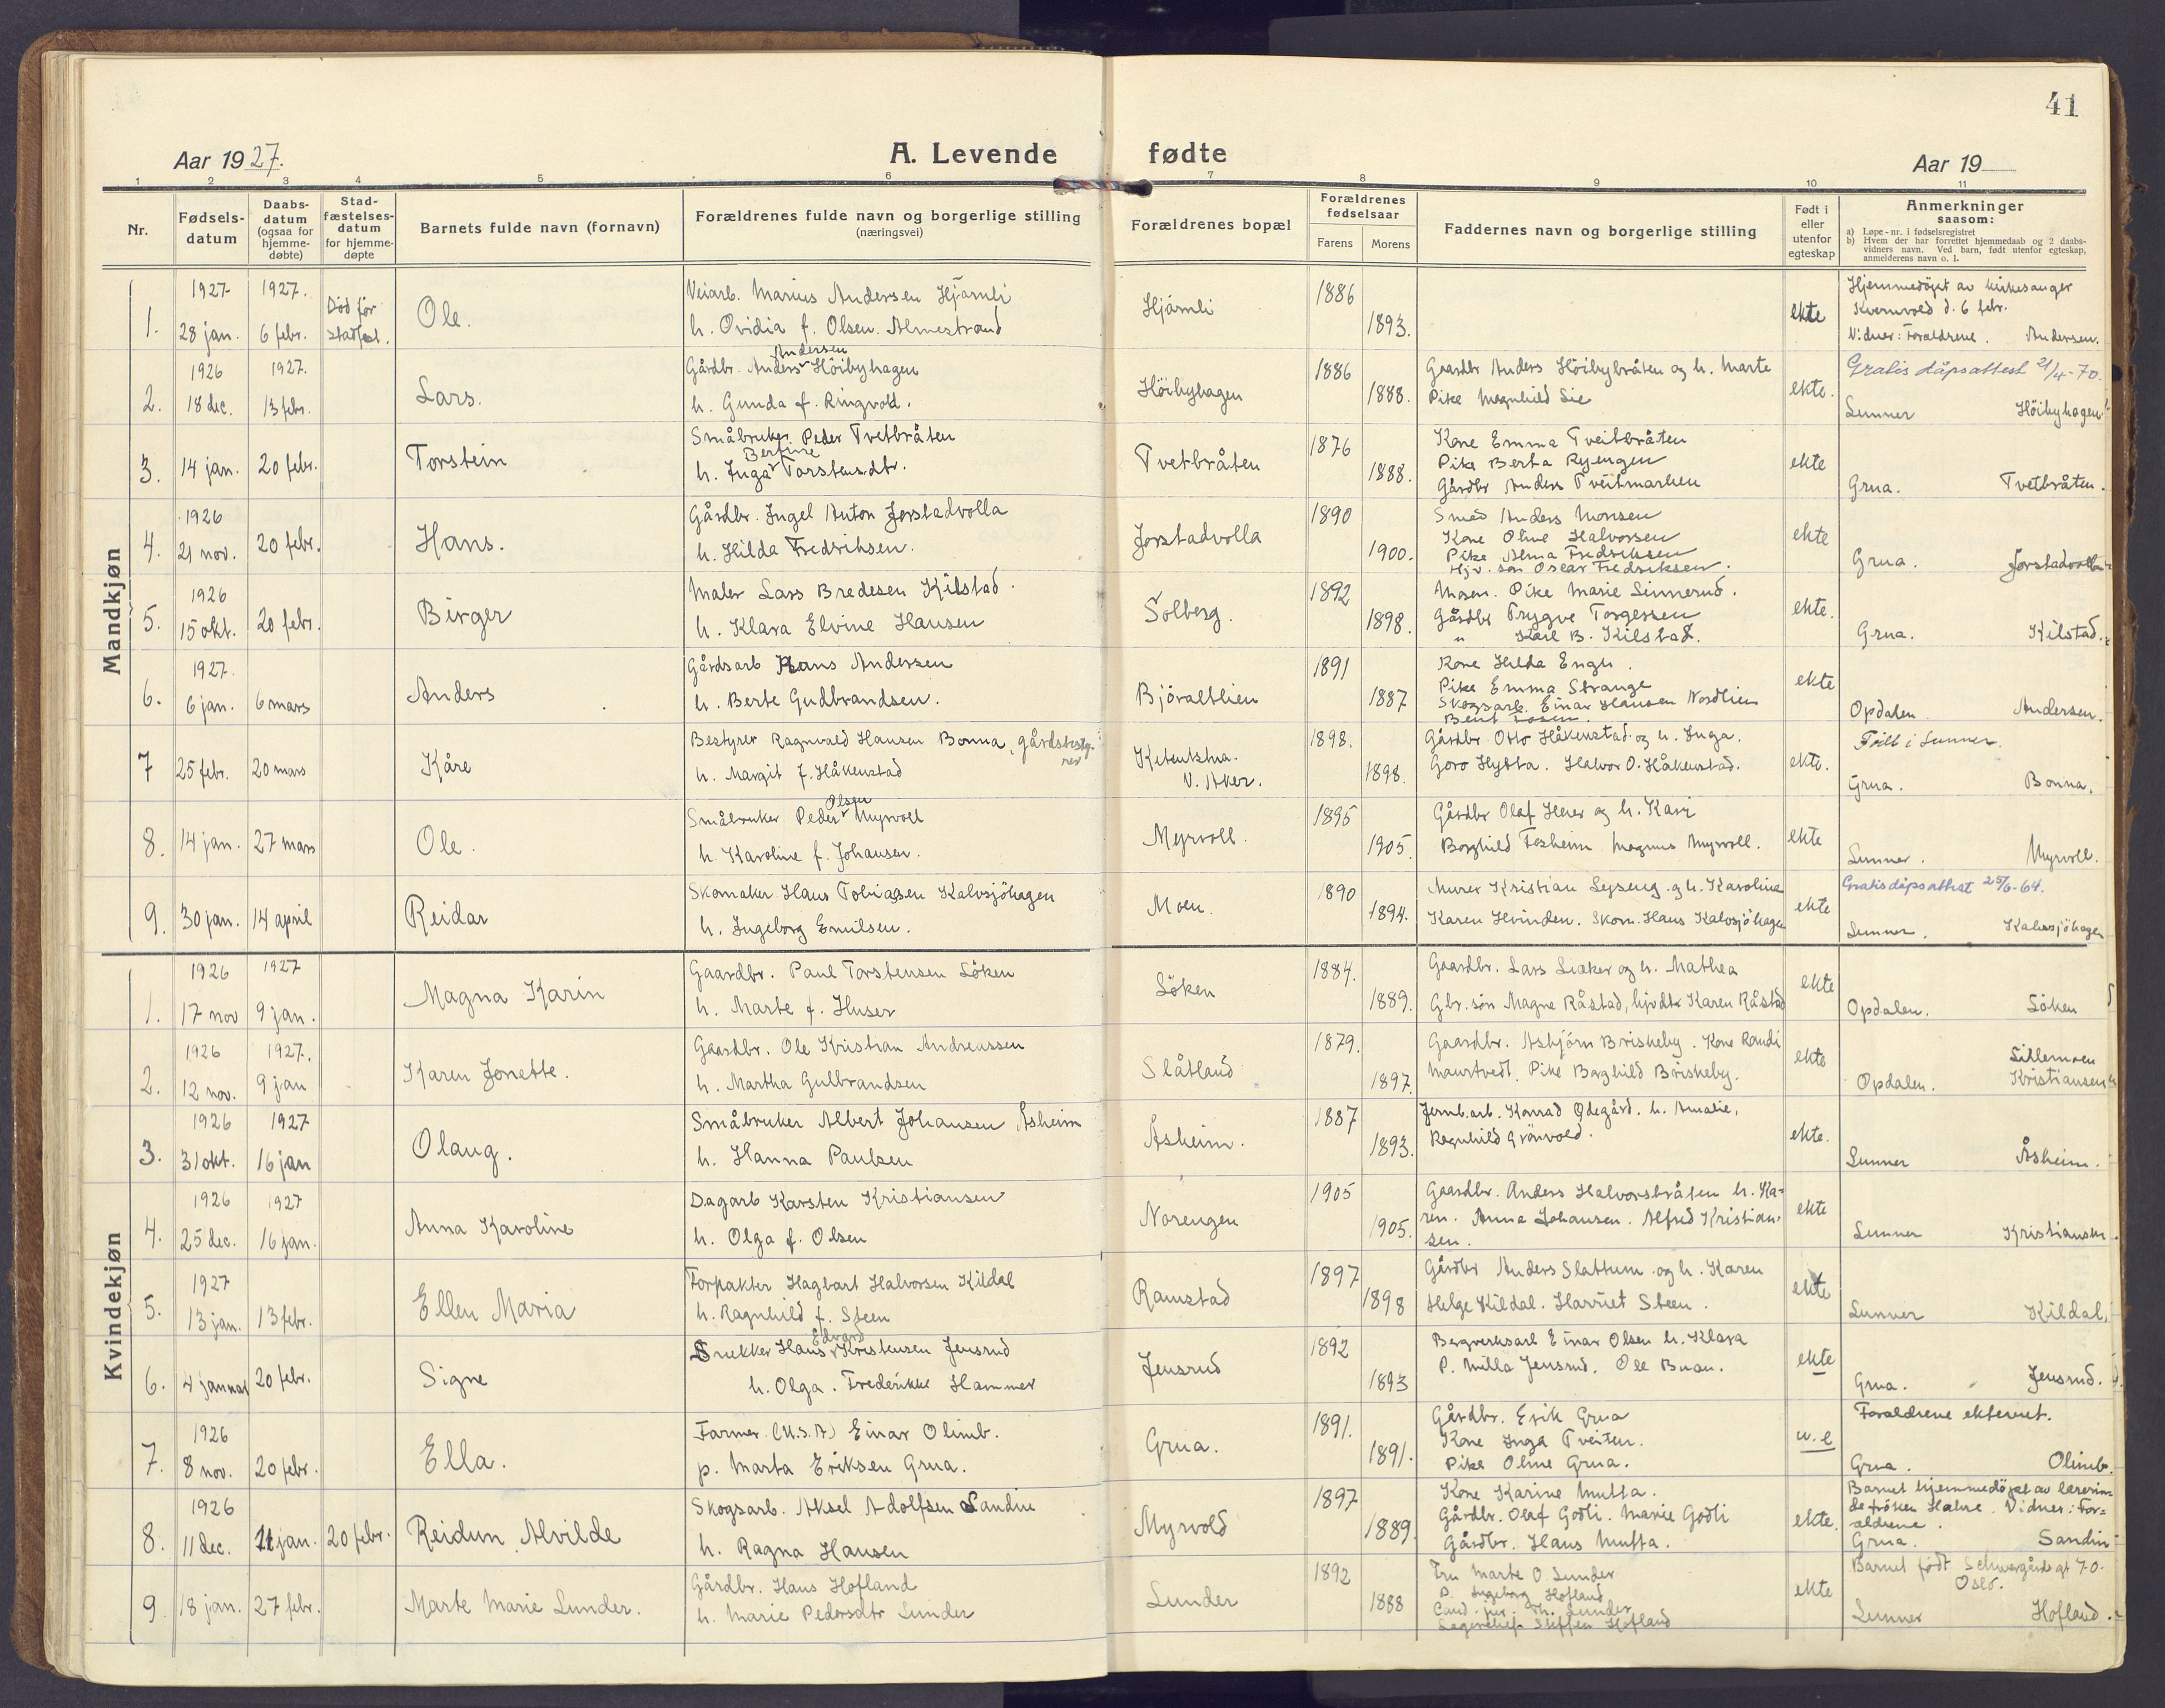 41
Aar 1927.
A. Levende fødte
Aar 19
1 2 3 4 5 6 7 8 9 10 11
Nr.
Fødsels-
datum
Daabs-
datum
(ogsaa for
hjemme-
døbte)
Stad-
fæstelses-
datum
for hjemme-
døpte
Barnets fulde navn (fornavn)
Forældrenes fulde navn og borgerlige stilling
(næringsvei)
Forældrenes bopæl
Forældrenes
fødselsaar
Farens Morens
Faddernes navn og borgerlige stilling
Født i
eller
utenfor
egteskap
Anmerkninger
saasom:
a) Løpe-nr. i fødselsregistret
b) Hvem der har forrettet hjemmedaab og 2 daabs-
vidners navn. Ved barn, født utenfor egteskap,
anmelderens navn o. l.
Mandkjøn
1. 1927 28 jan. 1927. 6 febr. Død før stadfest. Ole.
Veiarb. Marius Andersen Hjørnli
h. Ovidia f. Olsen Almestrand
Hjørnli 1886 1893. ekte
Hjemmedøpt av kirkesanger
Kvernvold d. 6 febr.
Vidner: Foraldrene. Andersen.
2. 1926 18 dec. 1927. 13 febr. Lars.
Gårdbr. Anders Andersen Høibyhagen
h. Gunda f. Ringvold.
Høibyhagen 1886 1888.
Gaardbr Anders Høibybråten og h. Marte
Pike Magnhild Lie
ekte.
Gratis dåpsattest 21/4-70.
Lunner Høibyhagen
3. 14 jan. 20 febr. Torstein
Småbruker Peder Tvetbråten
h. Inga Bertine Torstensdtr.
Tvetbråten 1876 1888.
Kone Emma Tveitbråten
Pike Berta Ryengen
Gårdbr Anders Tveitmarken
ekte
Grua. Tvetbråten.
4. 1926 21 nov. 20 febr. Hans.
Gårdbr. Ingel Anton Jorstadvolla
h. Hilda Fredriksen.
Jorstadvolla 1890 1900.
Smed Anders Monsen
Kone Oline Halvorsen
Pike Alma Fredriksen
Hjv. søn Oscar Fredriksen.
ekte
Grua. Jorstadvolla
5. 1926 15 okt. 20 febr. Birger
Maler Lars Bredesen Kilstad.
h. Klara Elvine Hansen
Solberg. 1892 1898.
Mosen. Pike Marie Linnerud.
Gårdbr Trygve Torgersen
" Karl B. Kilstad.
ekte.
Grua. Kilstad.
6. 1927. 6 jan. 6 mars Anders
Gårdsarb Hans Andersen
h. Berte Gudbrandsen.
Bjøraltlien 1891 1887
Kone Hilda Engh.
Pike Emma Strange
Skogsarb. Einar Hansen Nordlien
ekte
Opdalen Andersen.
7 25 febr. 20 mars Kåre
Bestyrer Ragnvald Hansen Bonna, gårdsbesty-
rer
h. Margit f. Håkenstad
V. Aker. 1898. 1898.
Gårdbr. Otto Håkenstad og h. Inga.
Goro Hytta. Halvor O. Håkenstad.
ekte.
Født i Lunner.
Grua. Bonna.
8. 14 jan. 27 mars Ole.
Småbruker Peder Olsen Myrvoll
h. Karoline f. Johansen.
Myrvoll. 1895 1905.
Gårdbr Olaf Herer og h. Kari
Borghild Tesheim Magnus Myrvoll.
ekte
Lunner. Myrvoll.
9. 30 jan. 14 april Reidar
Skomaker Hans Tobiassen Kalvsjøhagen
h. Ingeborg Emilsen.
Moen. 1890 1894.
Murer Kristian Lyseng og h. Karoline
Karen Hvinden. Skom. Hans Kalvsjøhagen
ekte
Gratis dåpsattest 25/6-64.
Lunner. Kalvsjøhagen
Kvindekjøn
1. 1926 17 nov 1927 9 jan. Magna Karin
Gaardbr. Paul Torstensen Søken
h. Marte f. Huser
Søken 1884. 1889.
Gaardbr. Lars Liaker og h. Mathea
Gbr. søn Magne Råstad, hjvdtr Karen Råstad
ekte
Opdalen. Søken
2. 1926 12 nov. 1927. 9 jan Karen Jonette.
Gaardbr. Ole Kristian Andreassen
h. Martha Gulbrandsen
Slåtland 1879. 1897.
Gaardbr. Asbjørn Briskeby. Kone Randi
Maurtvedt. Pike Borghild Briskeby.
ekte
Opdalen. Lillemoen
Kristiansen
3. 1926 31 okt. 1927 16 jan Olaug.
Småbruker Albert Johansen Åsheim
h. Hanna Paulsen
Åsheim. 1887 1893.
Jernb.arb. Konrad Ødegård. h. Amalie,
Ragnhild Grönvold.
ekte.
Lunner Åsheim.
4. 1926 25 dec. 1927 16 jan. Anna Karoline
Dagarb Karsten Kristiansen
h. Olga f. Olsen
Norengen 1905 1905.
Gaardbr. Anders Halvorsbråten h. Ka-
ren. Anna Johansen. Alfred Kristian-
sen.
ekte
Lunner Kristiansen
5. 1927 13 jan. 13 febr. Ellen Maria
Forpakter Hagbart Halvorsen Kildal
h. Ragnhild f. Steen
Ramstad 1897 1898
Gårdbr Anders Slattum og h. Karen
Helge Kildal. Harriet Steen.
ekte
Lunner Kildal.
6. 4 januar 20 febr. Signe
Snekker Hans Edvard Kristensen Jensrud
h. Olga. Frederikke Hammer
Jensrud 1892 1893
Bergverksarb Einar Olsen h. Klara
P. Milla Jensrud. Ole Buan.
ekte
Grua. Jensrud.
7. 1926 8 nov. 20 febr. Ella.
Farmer (U.S.A) Einar Olimb.
p. Marta Eriksen Grua.
Grua. 1891. 1891.
Gårdbr. Erik Grua
Kone Inga Tveiten.
Pike Oline Grua.
u.e
Foraldrene ekteviet.
Grua. Olimb.
8. 1926 11 dec. 11 jan. 20 febr. Reidun Alvilde
Skogsarb. Aksel Adolfsen Sandin
h. Ragna Hansen
Myrvold 1897 1889.
Kone Karine Mutta.
Gårdbr. Olaf Godli. Marie Godli
Gårdbr. Hans Mutta.
ekte.
Barnet hjemmedøpt av lærerin-
de frøken Halne. Vidner: For-
aldrene.
Grua. Sandin
9. 18 jan. 27 febr. Marte Marie Lunder.
Gårdbr. Hans Hofland
h. Marie Pedersdtr Lunder
Lunder 1892 1888
Fru Marte O Lunder
P. Ingeborg Hofland
Cand. jur. Th. Lunder
Lagerchef Steffen Hofland
ekte
Barnet født Schweigårds gt 70.
Oslo.
Lunner Hofland.